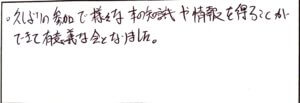 ・久しぶりの参加で様々な本の知識や情報を得ることが
できて有意義な会となりました。